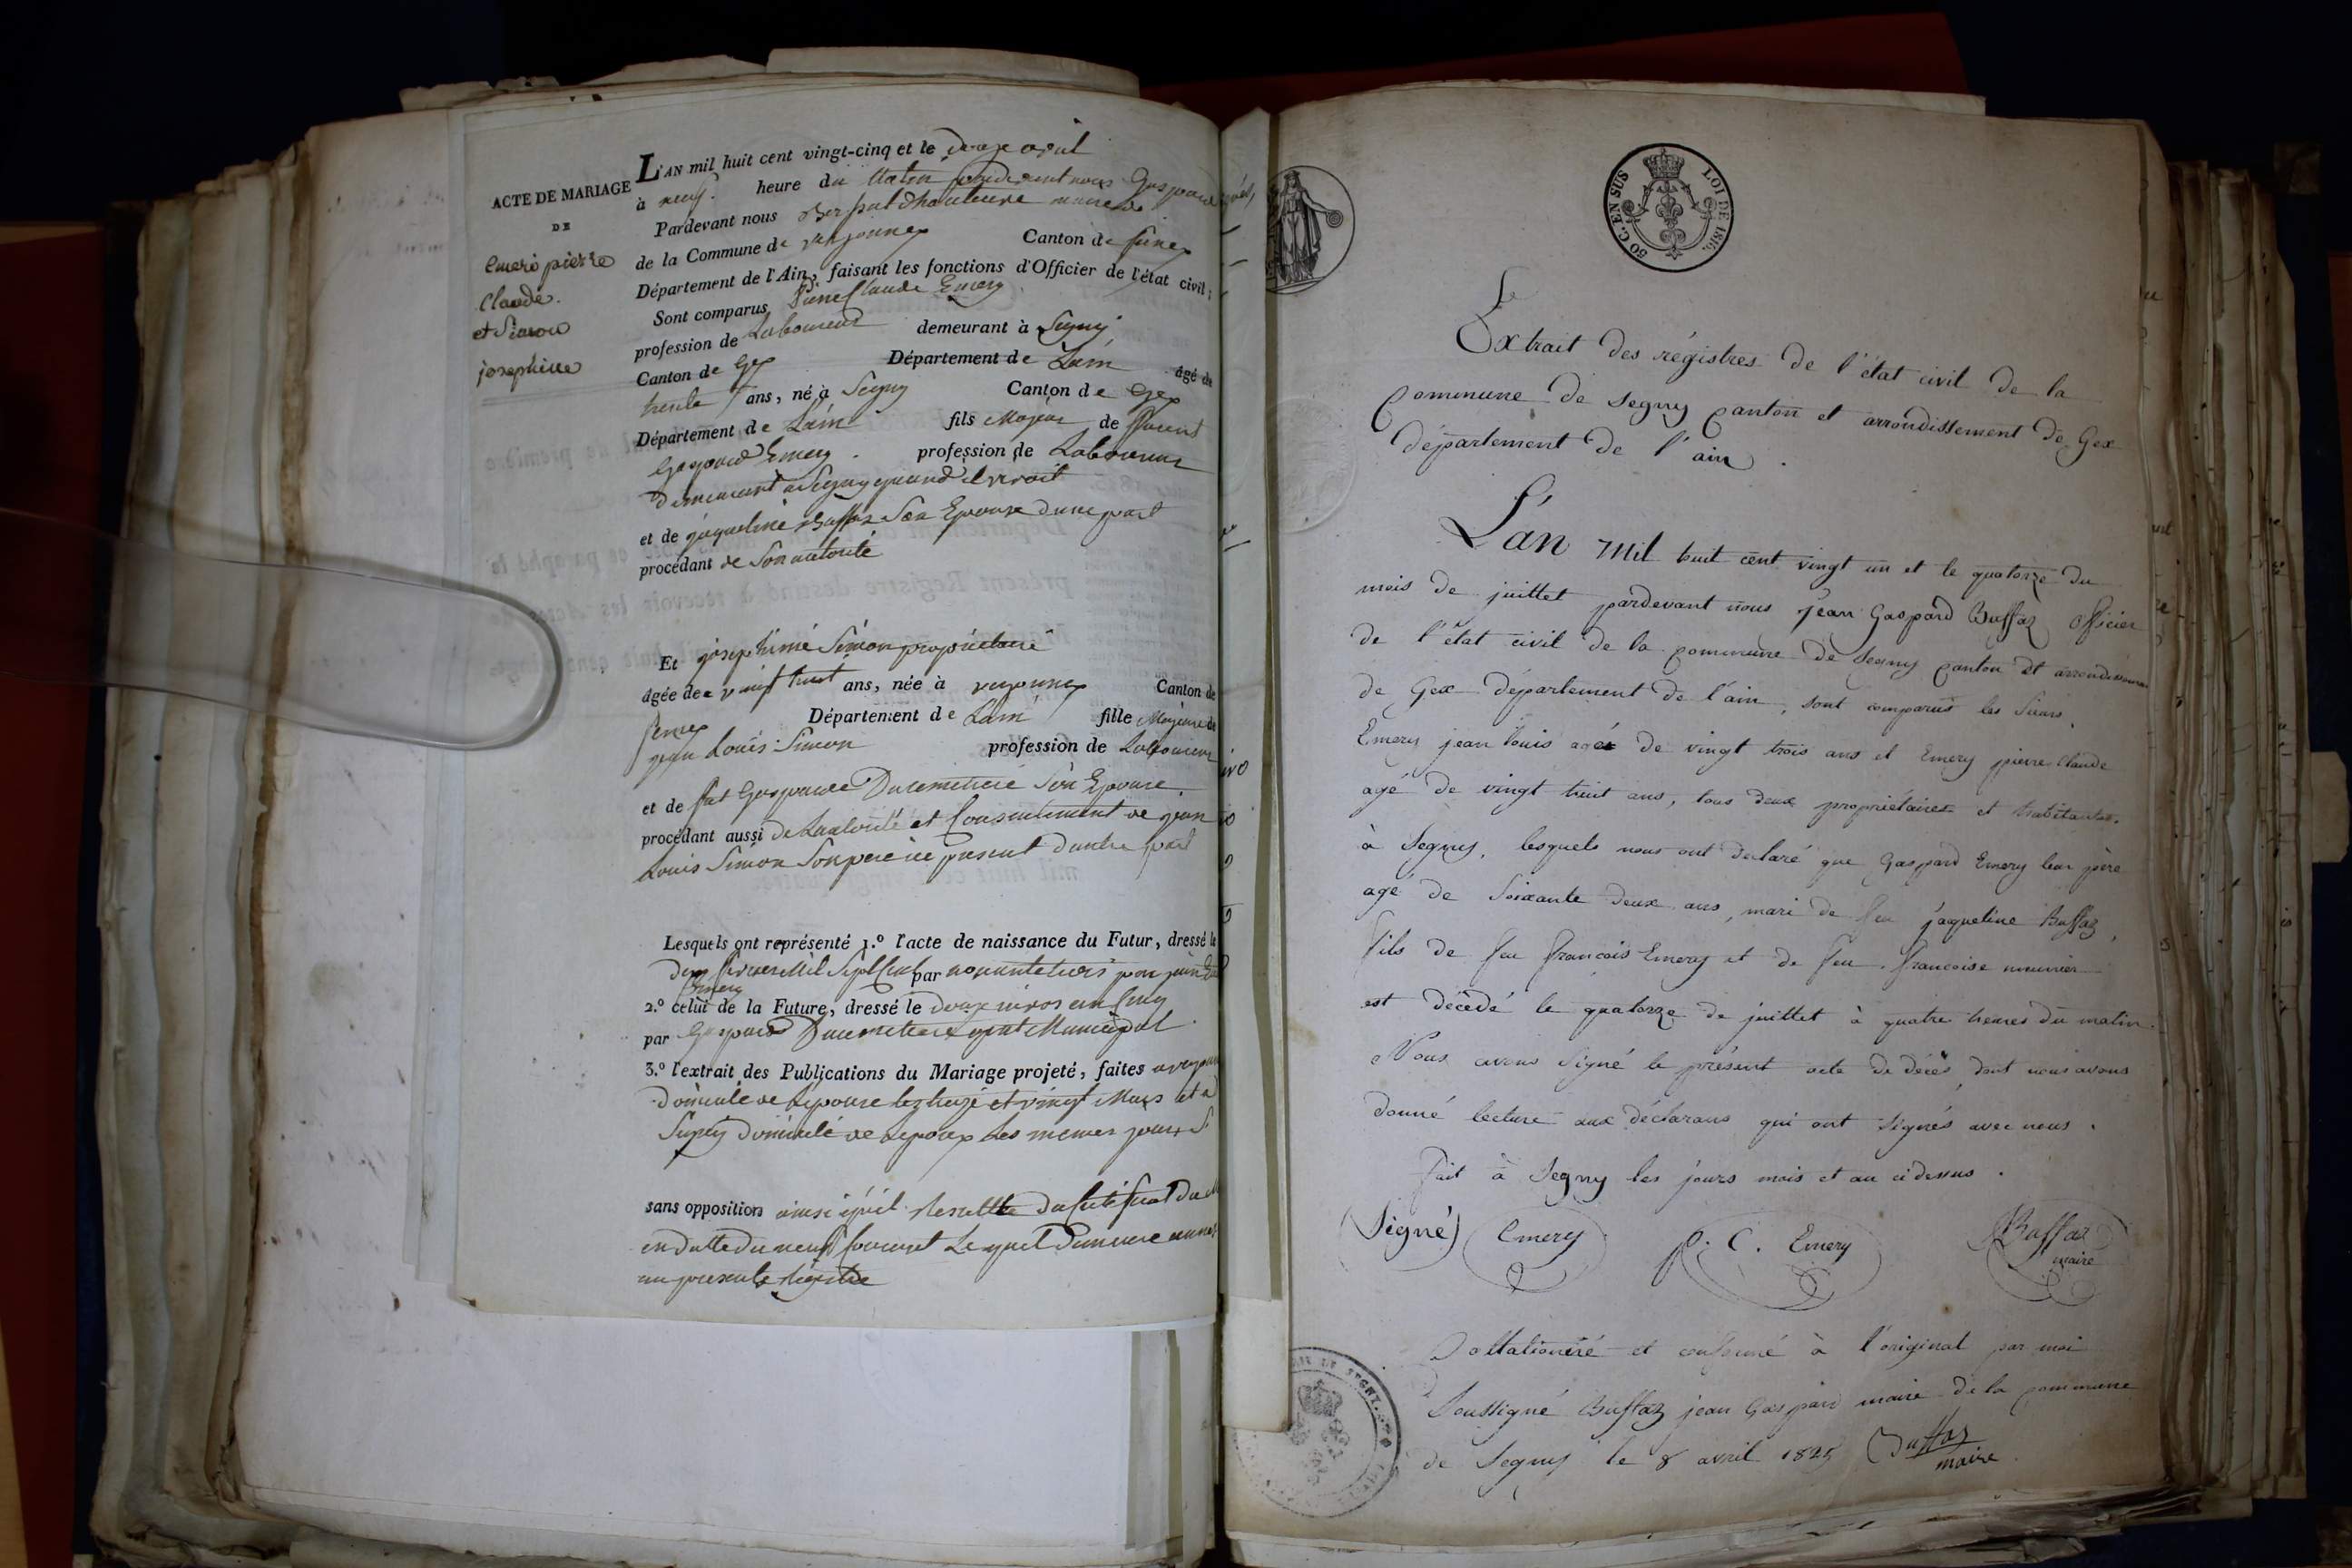 ACTE DE MARIAGE
DE
Emeri pierre
Claude
et Simon
josephine
L'AN mil huit cent vingt-cinq et le douze avril
à neuf heure du Matin
Pardevant nous
de la Commune de Canton de
Département de l'Ain, faisant les fonctions d'Officier de l'état civil;
Sont comparus Pierre Claude Emery
profession de Laboureur demeurant à Segny
Canton de Gex Département de Lain âgé de
trente ans, né à Segny Canton de Gex
Département de Lain fils Majeur de
Gaspard Emery profession de Laboureur
demeurant a Segny quand il vivoit
et de jaqueline Buffaz Son Epouse dune part
procédant de Son autorité
Et josephine Simon propriétaire
âgée de vingt huit ans, née à Canton de
Département de Lain fille Majeure de
jean Louis Simon profession de Laboureur
et de Gasparde Ducimetiere Son Epouse
procédant aussi de Lautorité et Consentement de jean
Louis Simon Son pere ice present dautre part
Lesquels ont représenté 1.º l'acte de naissance du Futur, dressé le
Mil Sept Cent par nonante trois par
Emery
2.º celui de la Future, dressé le
par Gaspard Ducimetiere agent Municipal
3.º l'extrait des Publications du Mariage projeté, faites
domicile de Lepouse les treize et vingt Mars et a
Segny domicile de Lepoux les memes jours
sans opposition ainsi qu'il Resulte du Certificat du
en datte du neuf Courant Lequel demeure annexé
au present Registre
50 C. EN SUS
LOI DE 1816.
Extrait des régistres de l'état civil de la
Commune de Segny Canton et arrondissement de Gex
département de l'ain.
L'an Mil huit cent vingt un et le quatorze du
mois de juillet pardevant nous Jean Gaspard Buffaz officier
de l'état civil de la Commune de Segny Canton et arrondissement
de Gex département de l'ain, sont comparus les Sieurs
Emery jean louis agé de vingt trois ans et Emery pierre Claude
agé de vingt huit ans, tous deux propriétaires et habitants
à Segny, lesquels nous ont declaré que Gaspard Emery leur père
agé de Soixante deux ans, mari de feu jaqueline Buffaz,
fils de feu françois Emery et de feu françoise meunier
est décédé le quatorze de juillet à quatre heures du matin.
Nous avons Signé le présent acte de décès, dont nous avons
donné lecture aux déclarans qui ont signés avec nous.
Fait à Segny les jours mois et an cidessus.
(Signé) Emery P. C. Emery Buffaz
maire
Collationné et conforme à l'original par moi
Soussigné Buffaz jean Gaspard maire de la Commune
de Segny le 8 avril 1825 Buffaz
maire